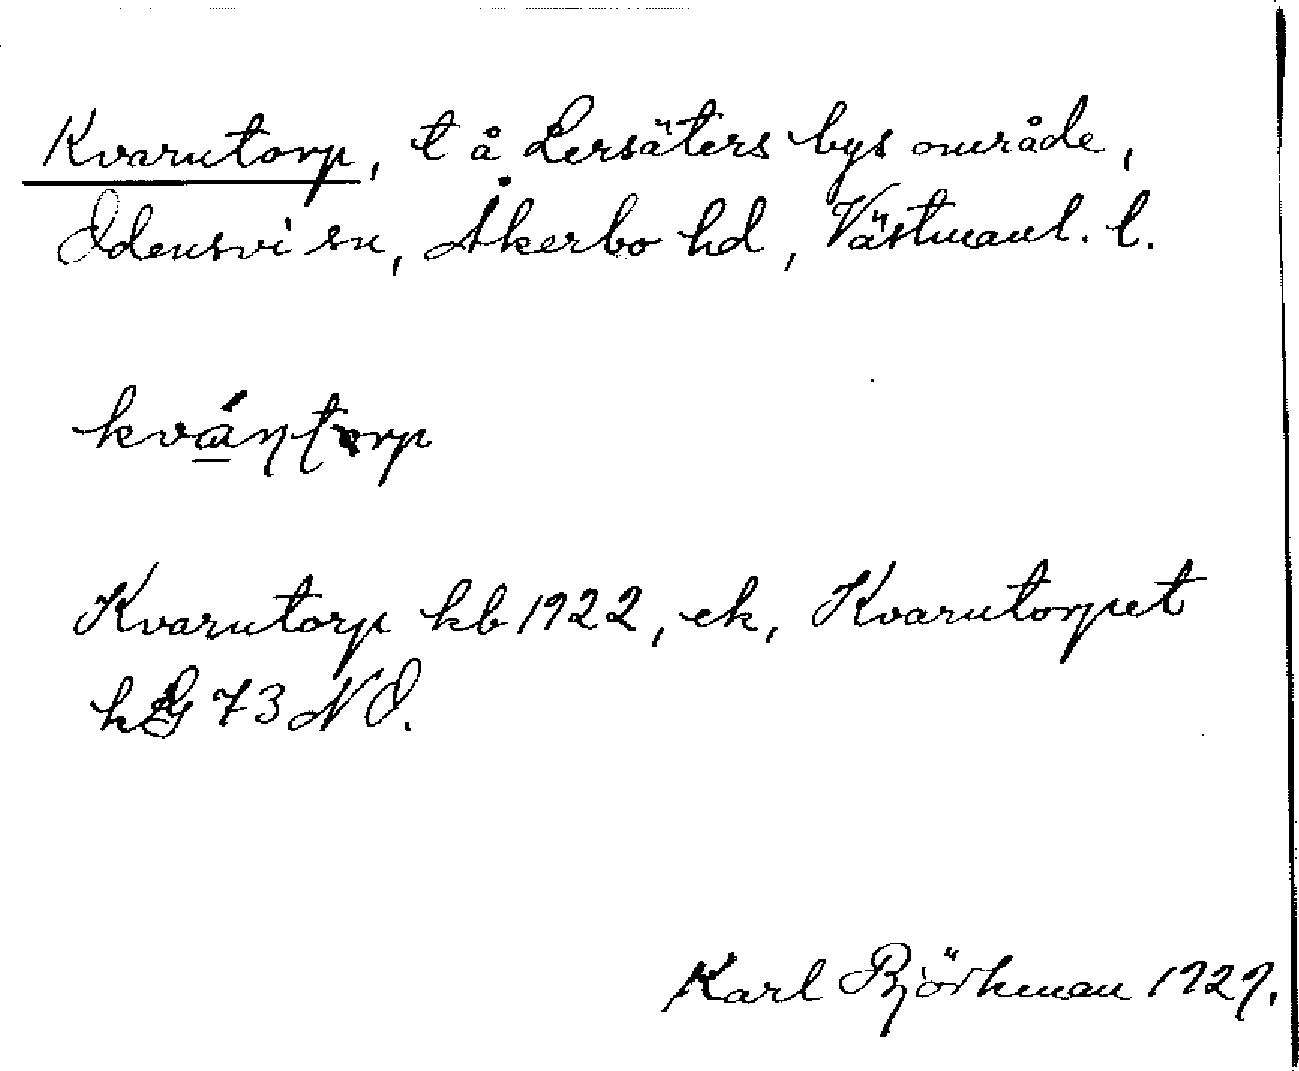 Kvarntorp, t å Lersäters bys område,
Odensvi sn, Åkerbo hd, Västmanl. l.
kvántorp
Kvarntorp kb 1922, ek, Kvarntorpet
hLG 73 NO.
Karl Björkman 1929.